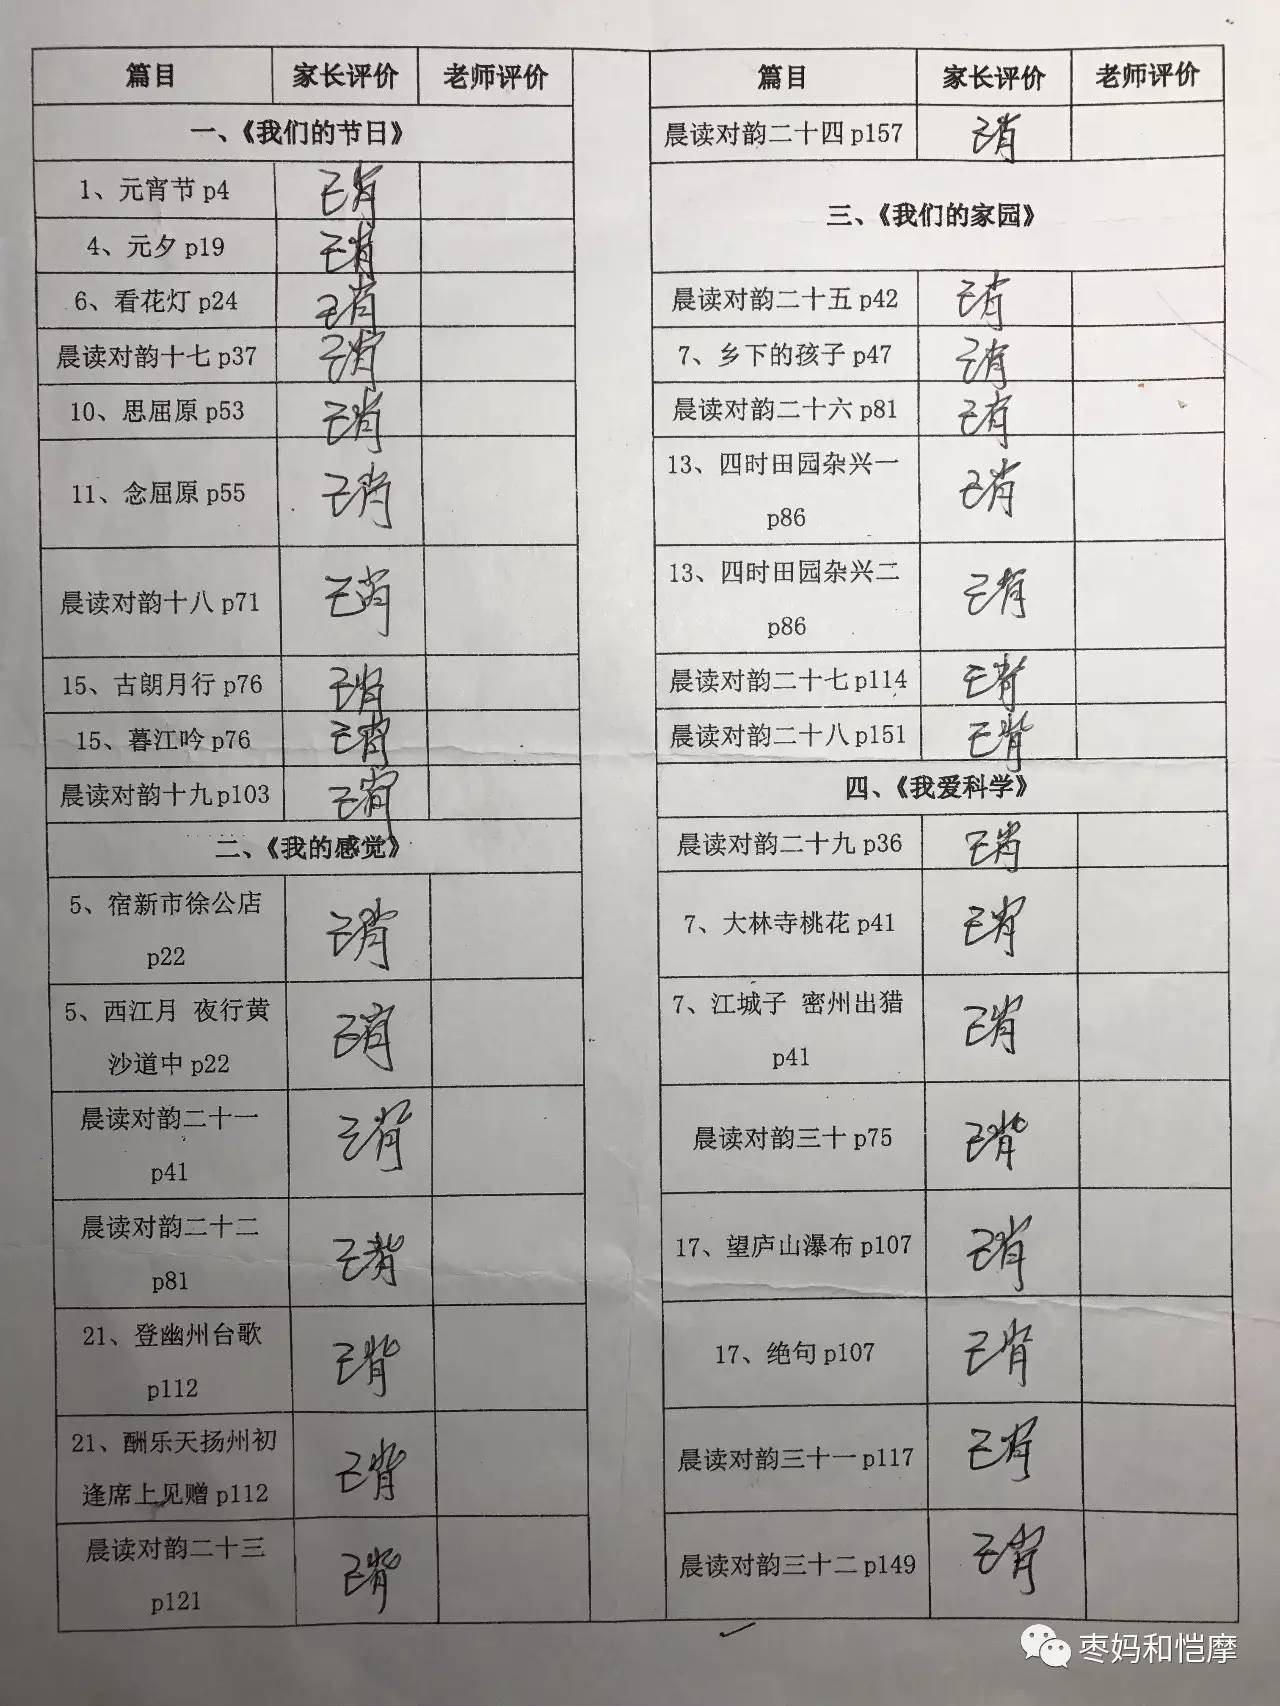 篇目 家长评价 老师评价
一、《我们的节日》
1、元宵节 p4 已背
4、元夕 p19 已背
6、看花灯 p24 已背
晨读对韵十七 p37 已背
10、思屈原 p53 已背
11、念屈原 p55 已背
晨读对韵十八 p71 已背
15、古朗月行 p76 已背
15、暮江吟 p76 已背
晨读对韵十九 p103 已背
二、《我的感觉》
5、宿新市徐公店
p22 已背
5、西江月 夜行黄
沙道中 p22 已背
晨读对韵二十一
p41 已背
晨读对韵二十二
p81 已背
21、登幽州台歌
p112 已背
21、酬乐天扬州初
逢席上见赠 p112 已背
晨读对韵二十三
p121 已背
篇目 家长评价 老师评价
晨读对韵二十四 p157 已背
三、《我们的家园》
晨读对韵二十五 p42 已背
7、乡下的孩子 p47 已背
晨读对韵二十六 p81 已背
13、四时田园杂兴一
p86 已背
13、四时田园杂兴二
p86 已背
晨读对韵二十七 p114 已背
晨读对韵二十八 p151 已背
四、《我爱科学》
晨读对韵二十九 p36 已背
7、大林寺桃花 p41 已背
7、江城子 密州出猎
p41 已背
晨读对韵三十 p75 已背
17、望庐山瀑布 p107 已背
17、绝句 p107 已背
晨读对韵三十一 p117 已背
晨读对韵三十二 p149 已背
枣妈和恺摩